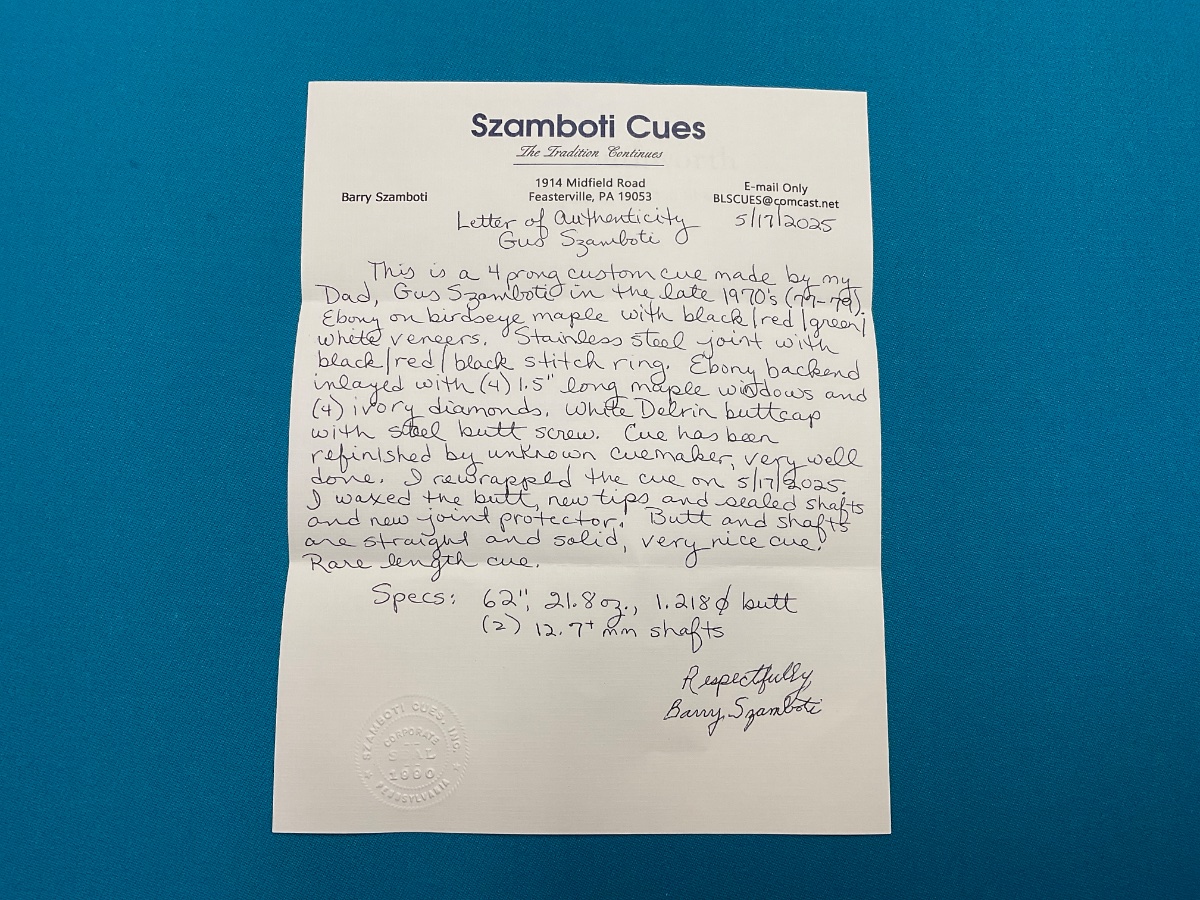 Szamboti Cues
The Tradition Continues
Barry Szamboti
1914 Midfield Road
Feasterville, PA 19053
E-mail Only
BLSCUES@comcast.net
Letter of Authenticity
5/17/2025
Gus Szamboti
This is a 4 prong custom cue made by my
Dad, Gus Szamboti in the late 1970's (77-79).
Ebony on birdseye maple with black/red/green/
white veneers. Stainless steel joint with
black/red/black stitch ring. Ebony backend
inlayed with (4) 1.5" long maple windows and
(4) ivory diamonds. White Delrin buttcap
with steel butt screw. Cue has been
refinished by unknown cuemaker, very well
done. I rewrapped the cue on 5/17/2025.
I waxed the butt, new tips and sealed shafts
and new joint protector. Butt and shafts
are straight and solid, very nice cue.
Rare length cue.
Specs: 62", 21.8 oz., 1.218ϕ butt
(2) 12.7+ mm shafts
Respectfully
Barry Szamboti
SZAMBOTI CUES, INC.
CORPORATE
SEAL
1990
PENNSYLVANIA